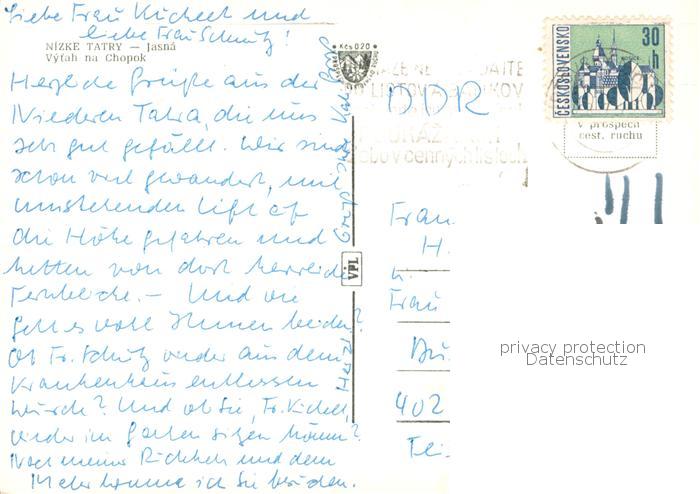 Liebe Frau Kichelt und
liebe Frau Schütz!
NÍZKE TATRY — Jasná
Výťah na Chopok
Herzliche Grüße aus der
Niederen Tatra, die uns
sehr gut gefällt. Wir sind
schon viel gewandert, mit
umstehendem Lift auf
die Höhe gefahren und
hatten von dort herrliche
Fernblicke. — Und wie
geht es wohl Ihnen beiden?
Ob Fr. Schütz wieder aus dem
Krankenhaus entlassen
wurde? Und ob Sie, Fr. Kichelt,
wieder im Garten sitzen können?
Nach meiner Rückkehr und dem
komme ich Sie
Herzl. Grüße Ihre
Kčs 0,20
VPL
DDR
LISTOV A
v cenných listoch
ČESKOSLOVENSKO
30 h
v prospech
cest. ruchu
Frau
H.
u.
Frau
402
privacy protection
Datenschutz